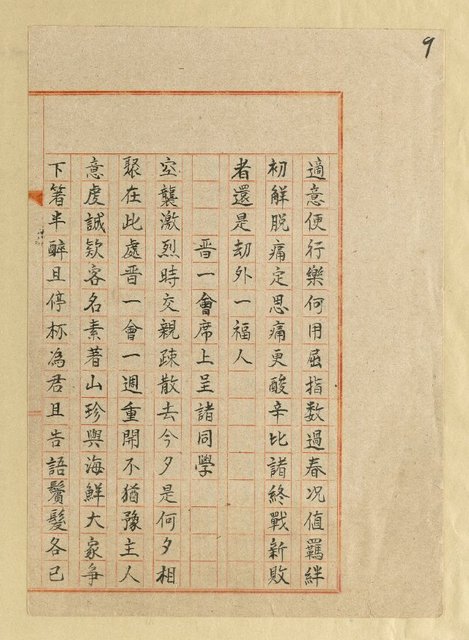 9
適意便行樂何用屈指數過春况值羈絆
初解脱痛定思痛更酸辛比諸終戰新敗
者還是刧外一福人
晋一會席上呈諸同學
空襲激烈時交親疎散去今夕是何夕相
聚在此處晋一會一週重開不猶豫主人
意虔誠欵客名素著山珍與海鮮大家争
下箸半醉且停杯為君且告語鬢髮各已